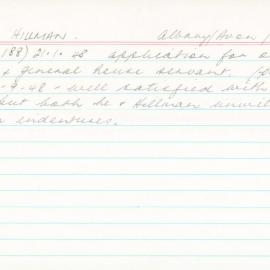 HILLMAN. Albany/Avon
188) 21.1.48 application for
& general house servant.
-9-48 - well satisfied with
but both he & Hillman
indentures.